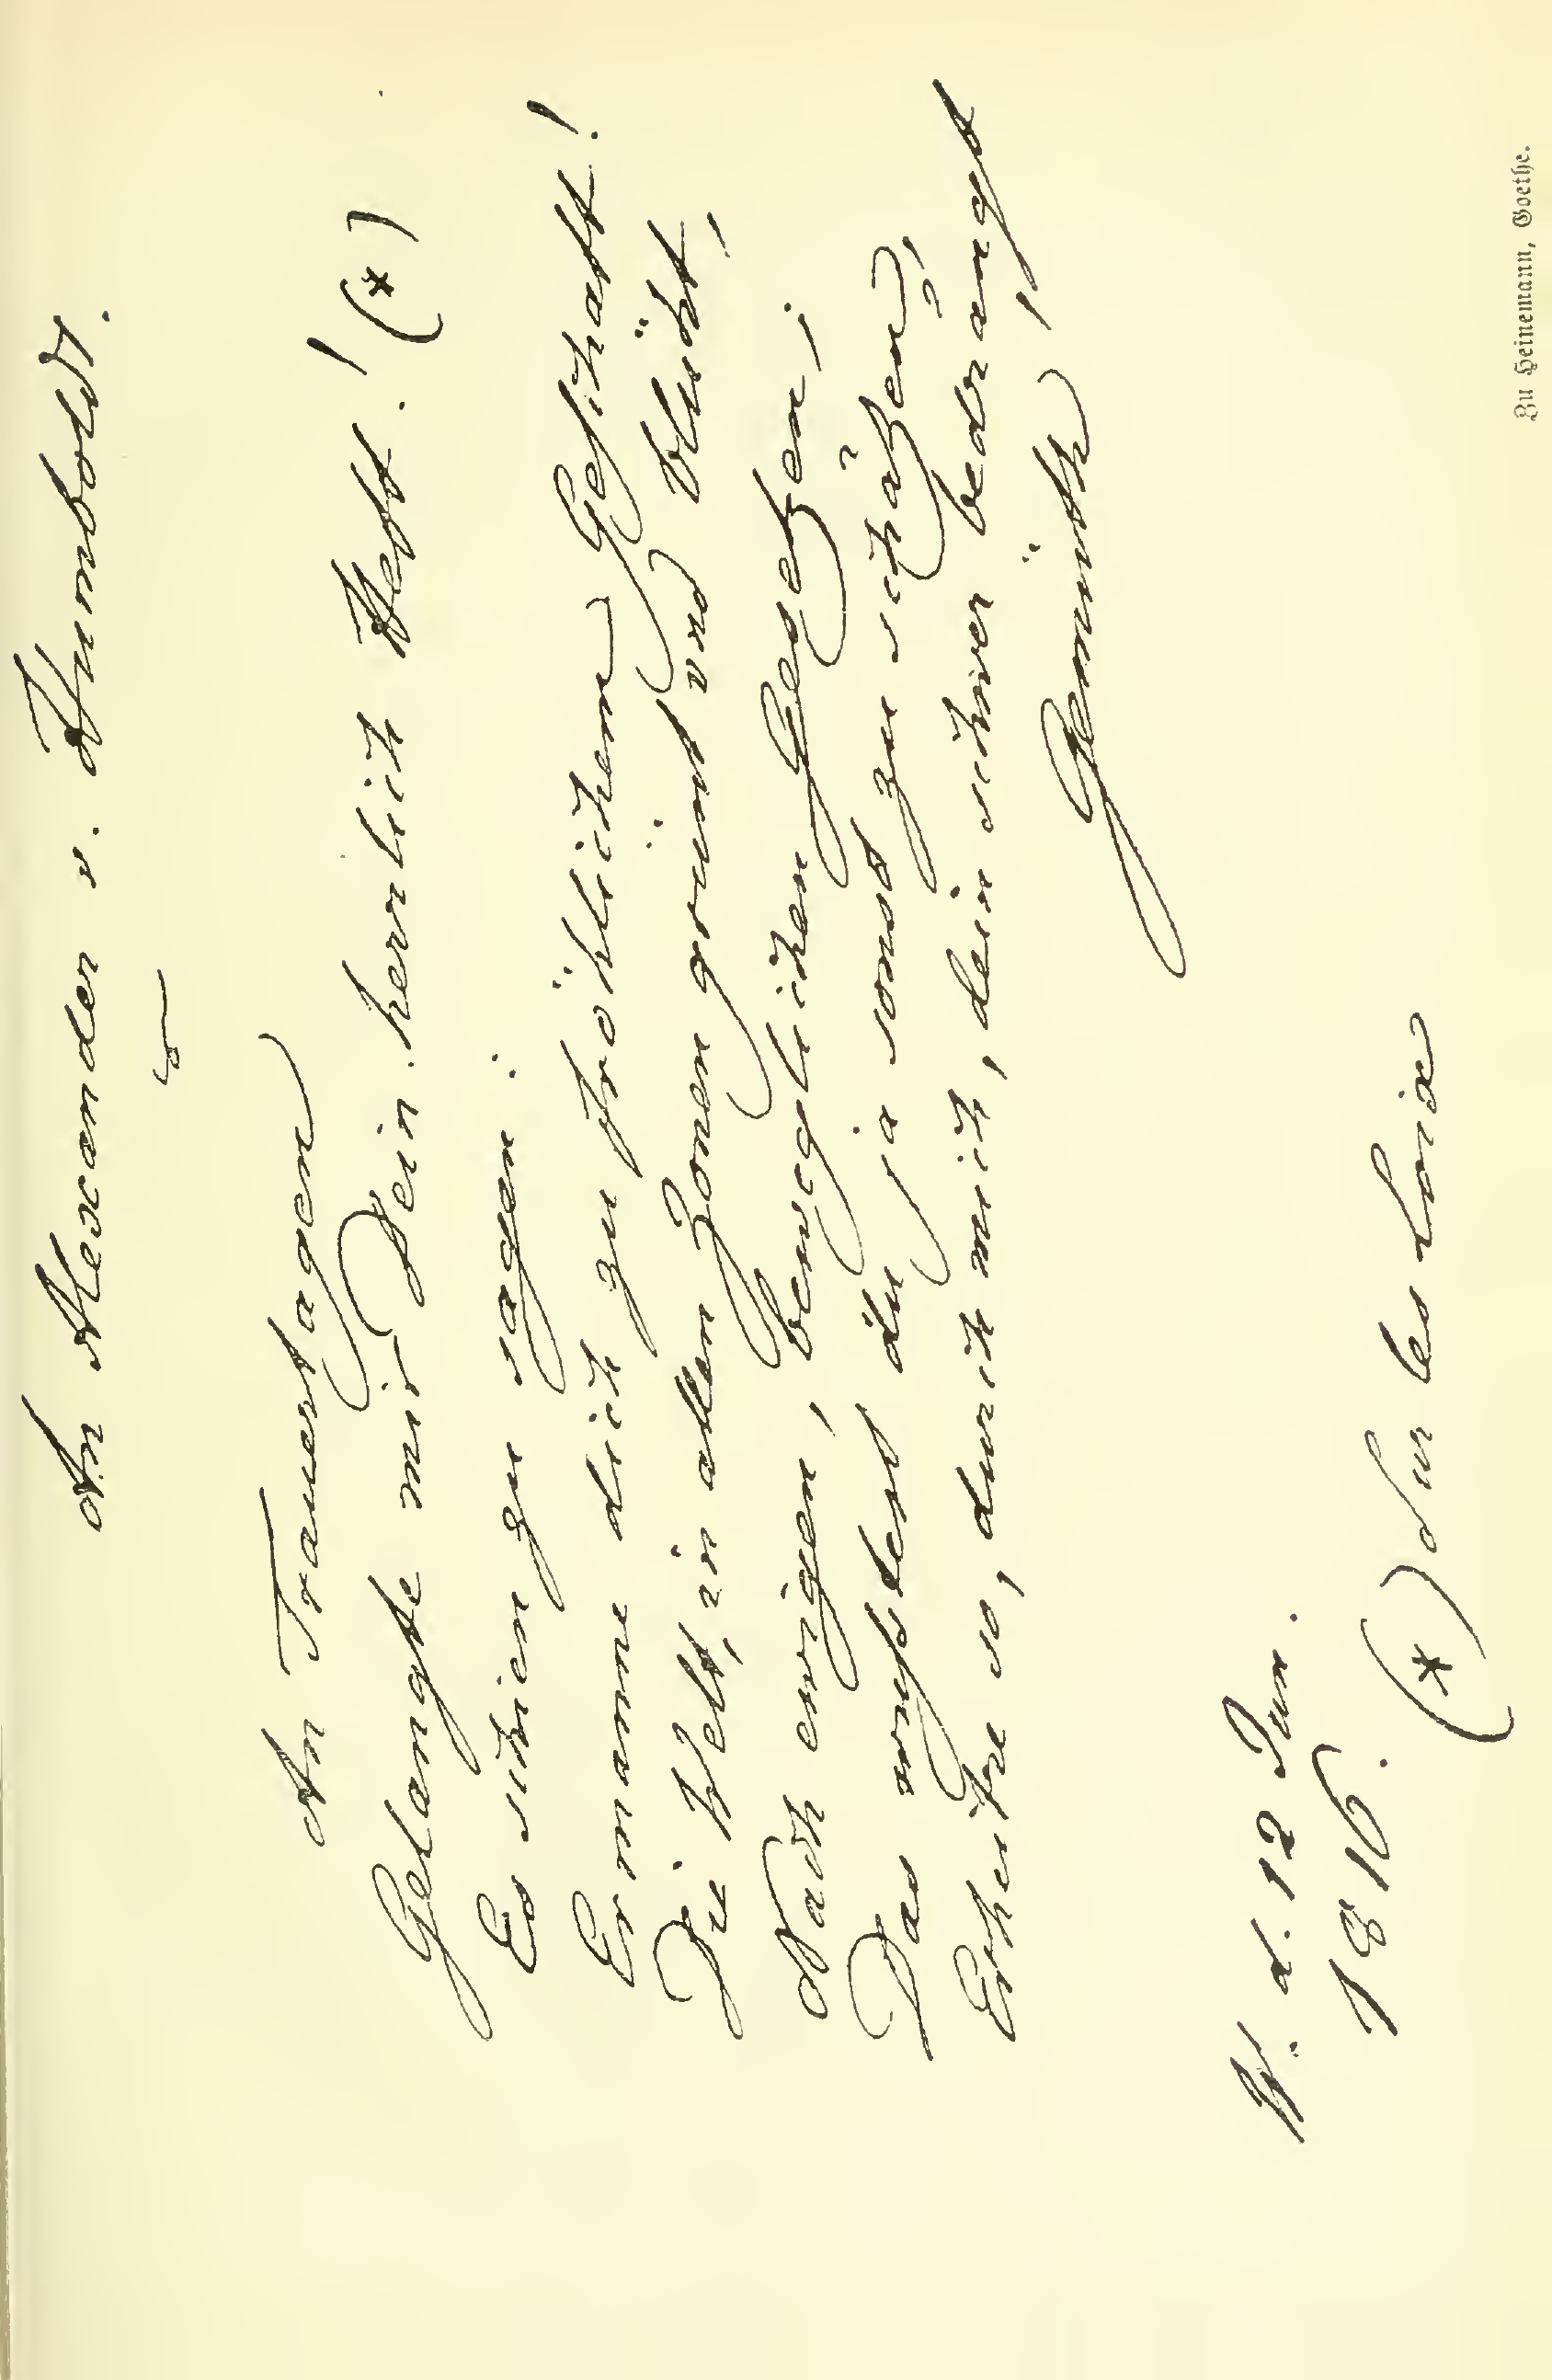 An Alexander v. Humboldt.
An Trauertagen
Gelangte mir Dein herrlich Heft! (*)
Es schien zu sagen:
Ermanne dich zu fröhlichem Geschäft!
Die Welt, in allen Zonen grünt und blüht,
Nach ewigen, beweglichen Gesetzen;
Das wußtest du ja sonst zu schätzen,
Erheitre so, durch mich, dein schwer bedrängt
Gemüth,
W. d. 12 Jun.
1816.
(*) Sur les Loix
Zu Heinemann, Goethe.